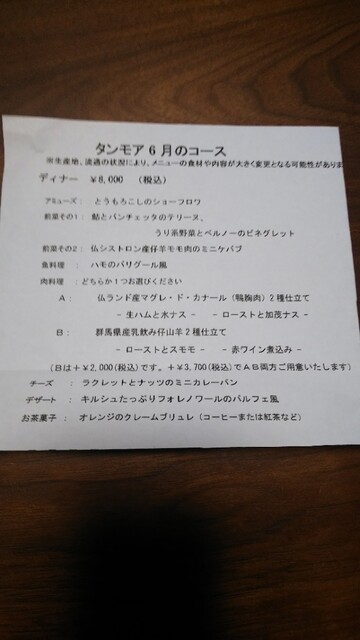 タンモア６月のコース
※生産地、流通の状況により、メニューの食材や内容が大きく変更となる可能性がありま
ディナー ￥8,000 （税込）
アミューズ： とうもろこしのショーフロワ
前菜その1： 鮎とパンチェッタのテリーヌ、
うり系野菜とベルノーのビネグレット
前菜その2： 仏シストロン産仔羊モモ肉のミニケバブ
魚料理 ： ハモのバリグール風
肉料理 ：どちらか１つお選びください
Ａ： 仏ランド産マグレ・ド・カナール（鴨胸肉）２種仕立て
- 生ハムと水ナス - - ローストと加茂ナス -
Ｂ： 群馬県産乳飲み仔山羊２種仕立て
- ローストとスモモ - - 赤ワイン煮込み -
（Ｂは＋￥2,000(税込)です。＋￥3,700(税込)でＡＢ両方ご用意いたします）
チーズ ： ラクレットとナッツのミニカレーパン
デザート ： キルシュたっぷりフォレノワールのパルフェ風
お茶菓子 ： オレンジのクレームブリュレ（コーヒーまたは紅茶など）